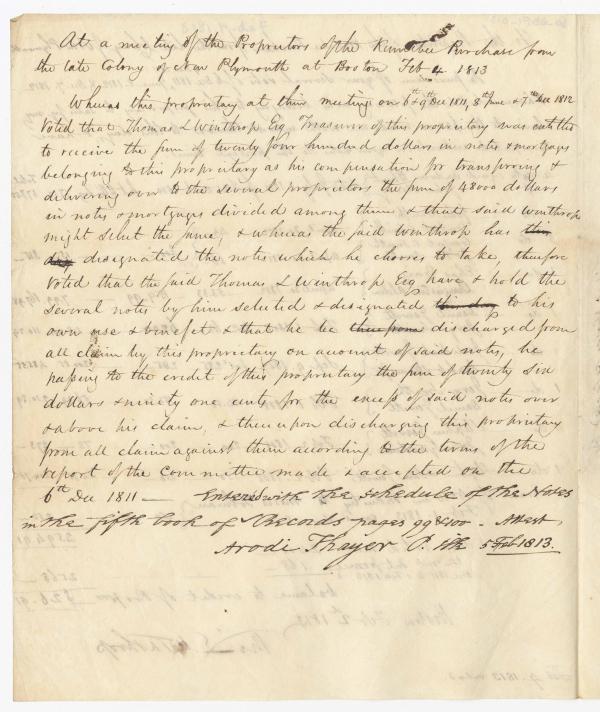 At a meeting of the Proprietors of the Kennebec Purchase from
the late Colony of New Plymouth at Boston Feb 4 1813
Whereas this proprietary at their meetings on 6th & 9th Dec 1811, 8th June & 7th Dec 1812
Voted that Thomas L Winthrop Esq Treasurer of this proprietary was entitled
to receive the sum of twenty four hundred dollars in notes & mortgages
belonging to this proprietary as his compensation for transferring &
delivering over to the several proprietors the sum of 48000 dollars
in notes & mortgages divided among them & that said Winthrop
might select the same, & whereas the said Winthrop has this
day designated the notes which he chooses to take, therefore
Voted that the said Thomas L Winthrop Esq have & hold the
several notes by him selected & designated this day to his
own use & benefit & that he be discharged from
all claim by this proprietary on account of said notes, he
passing to the credit of this proprietary the sum of twenty six
dollars & ninety one cents for the excess of said notes over
& above his claim, & thereupon discharging this proprietary
from all claim against them according to the terms of the
report of the Committee made & accepted on the
6th Dec 1811 — Entered with the schedule of the Notes
in the fifth book of Records pages 99 & 100 - Attest
Arodi Thayer P. Clk 5 Feb 1813.